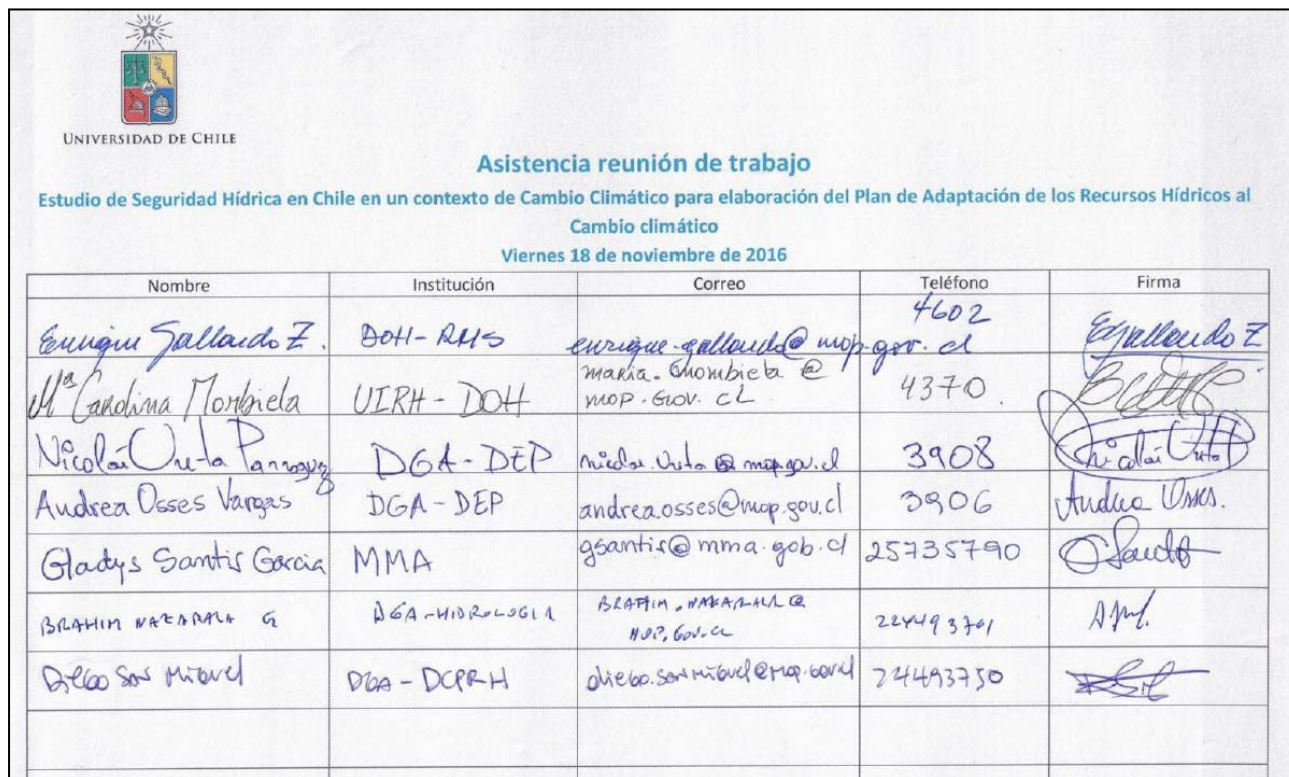 UNIVERSIDAD DE CHILE
Asistencia reunión de trabajo
Estudio de Seguridad Hídrica en Chile en un contexto de Cambio Climático para elaboración del Plan de Adaptación de los Recursos Hídricos al
Cambio climático
Viernes 18 de noviembre de 2016
Nombre Institución Correo Teléfono Firma
Enrique Gallardo Z. DOH-RHS enrique.gallardo@mop.gov.cl 4602 EGallardo Z
Mª Carolina Mombiela UIRH-DOH maria.mombiela@
mop.gov.cl 4370
Nicolai Ureta DGA-DEP nicolai.ureta@mop.gov.cl 3908 Nicolai Ureta
Andrea Osses Vargas DGA-DEP andrea.osses@mop.gov.cl 3906 Andrea Osses.
Gladys Santis Garcia MMA gsantis@mma.gob.cl 25735790
BRAHIM NAZARALA G DGA-HIDROLOGIA BRAHIM.NAZARALA@
MOP.GOV.CL 224493761
Diego San Miguel DGA-DCPRH diego.sanmiguel@mop.gov.cl 24493750